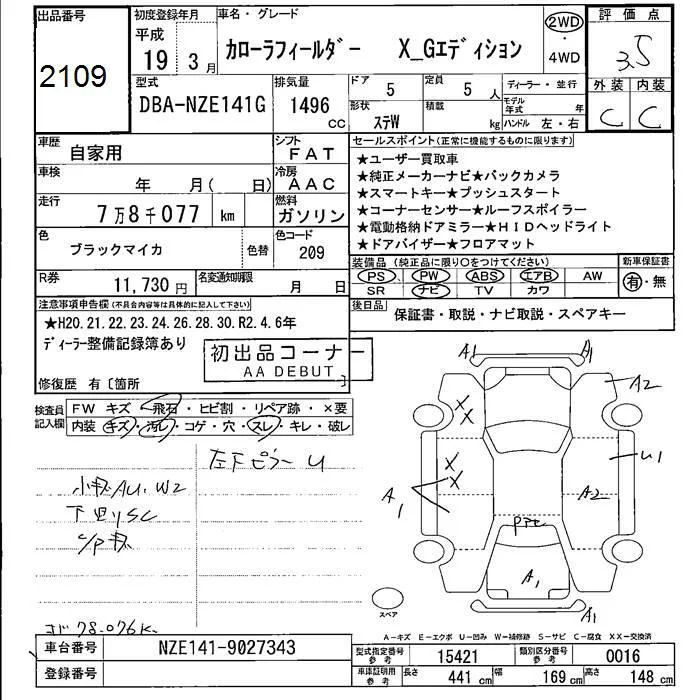 出品番号
2109
初度登録年月
平成
19年3月
車名・グレード
カローラフィールダー X_Gエディション
2WD
・
4WD
評価点
3.5
外装 内装
C C
型式
DBA-NZE141G
排気量
1496
CC
ドア
5
定員
5人
形状
ステW
積載
kg
ディーラー・並行
モデル年式 年
ハンドル 左・右
車歴
自家用
シフト
FAT
車検
年 月( 日)
冷房
AAC
走行
7万8千077 km
燃料
ガソリン
色
ブラックマイカ
色替
色コード
209
R券
11,730円
名変通知期限
月 日
セールスポイント(正常に機能するものに限ります)
★ユーザー買取車
★純正メーカーナビ★バックカメラ
★スマートキー★プッシュスタート
★コーナーセンサー★ルーフスポイラー
★電動格納ドアミラー★HIDヘッドライト
★ドアバイザー★フロアマット
装備品(純正品に限り○をつけてください)
PS PW ABS エアB AW
SR ナビ TV カワ
新車保証書
有・無
後日品
保証書・取説・ナビ取説・スペアキー
注意事項申告欄(不具合内容等は具体的に記入して下さい)
★H20.21.22.23.24.26.28.30.R2.4.6年
ディーラー整備記録簿あり
初出品コーナー
AA DEBUT
修復歴 有〔箇所 〕
検査員記入欄
FW キズ・飛石・ヒビ割・リペア跡・×要
内装 キズ・汚レ・コゲ・穴・スレ・キレ・破レ
左下ピラーU
小キズAU、W2
下回りSC
コド78.076K
A1
A1
A2
X
X
X
X
A1
U1
A2
A1
A1
スペア
A-キズ E-エクボ U-凹み W-補修跡 S-サビ C-腐食 XX-交換済
車台番号
NZE141-9027343
登録番号
型式指定番号
参考
15421
類別区分番号
参考
0016
車庫証明用
参考
長さ 441 cm
幅 169 cm
高さ 148 cm